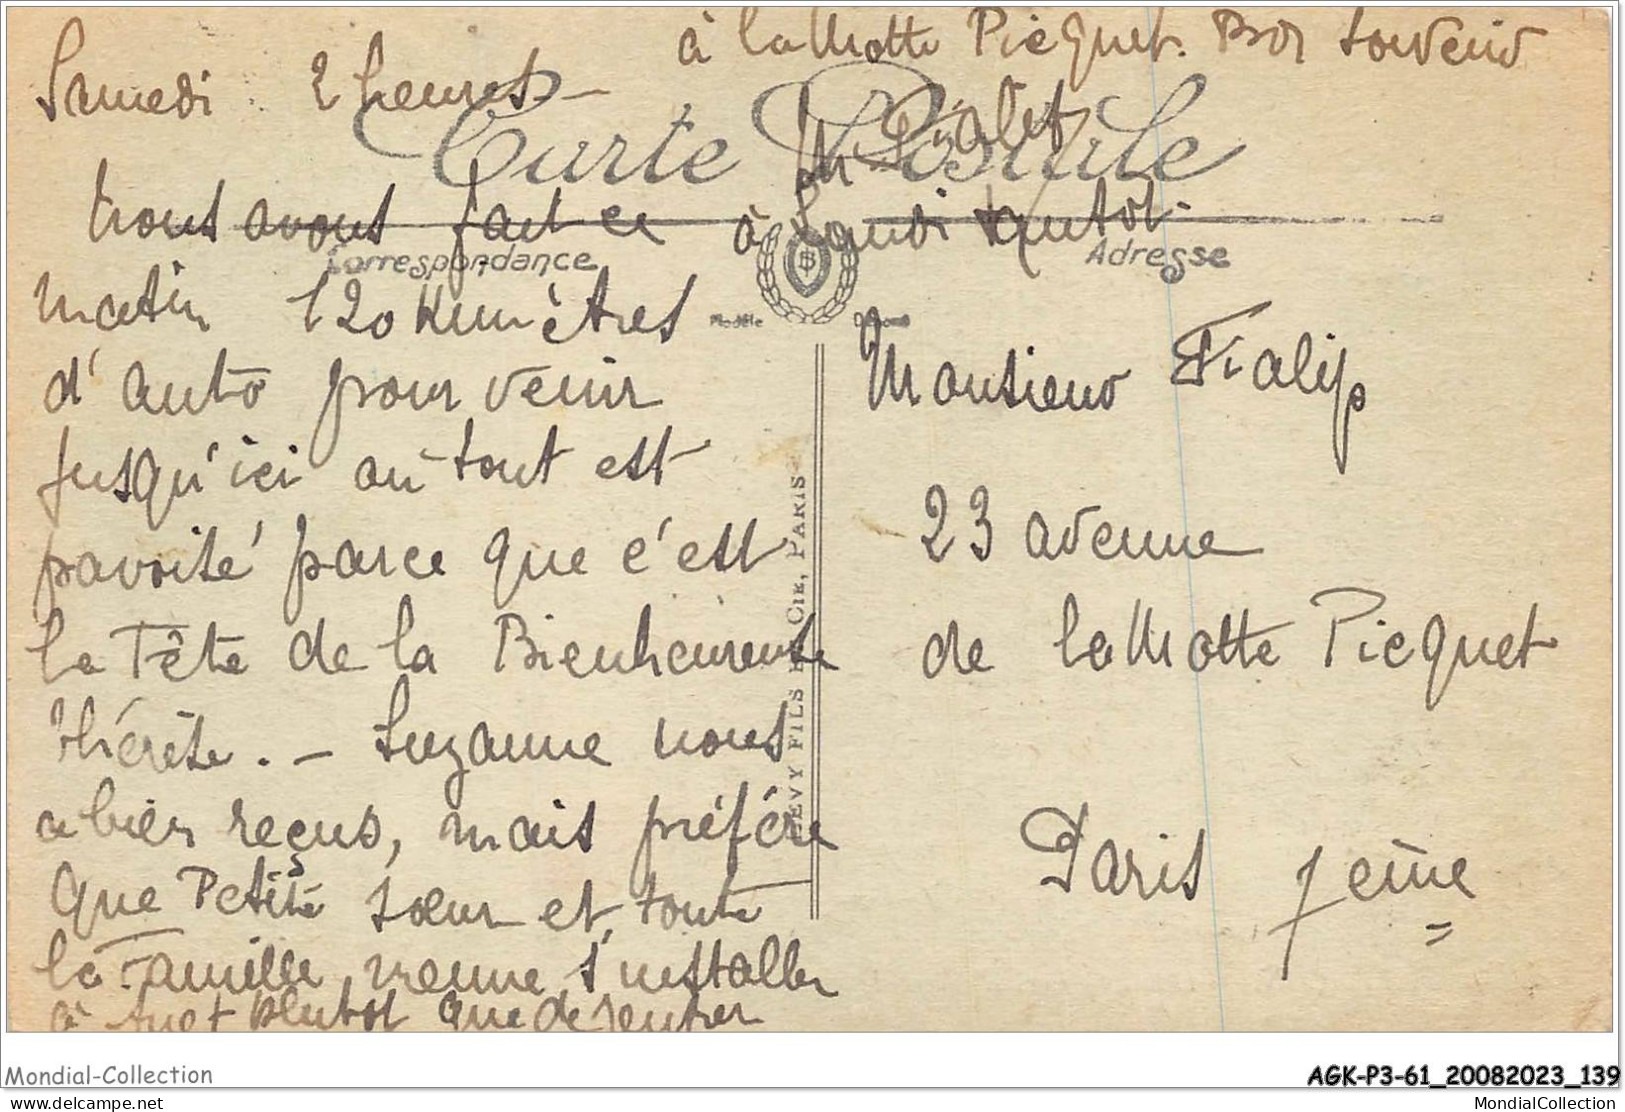 à la Motte Picquet. Bon souvenir
Samedi 2 heures –
Carte Postale
nous avons fait ce
à lundi
Correspondance
Adresse
matin 120 Kumètres
Modèle
d'auto pour venir
Monsieur Fialip
jusqu'ici où tout est
23 avenue
pavoisé parce que c'est
la Fête de la Bienheureuse
de la Motte Picquet
Thérèse. – Suzanne nous
a bien reçus, mais préfére
Paris 7eme
que Petite soeur et toute
la Famille vienne s'installer
à plutot que de rentrer
LEVY FILS ET CIE, PARIS
Mondial-Collection
AGK-P3-61_20082023_139
www.delcampe.net
MondialCollection